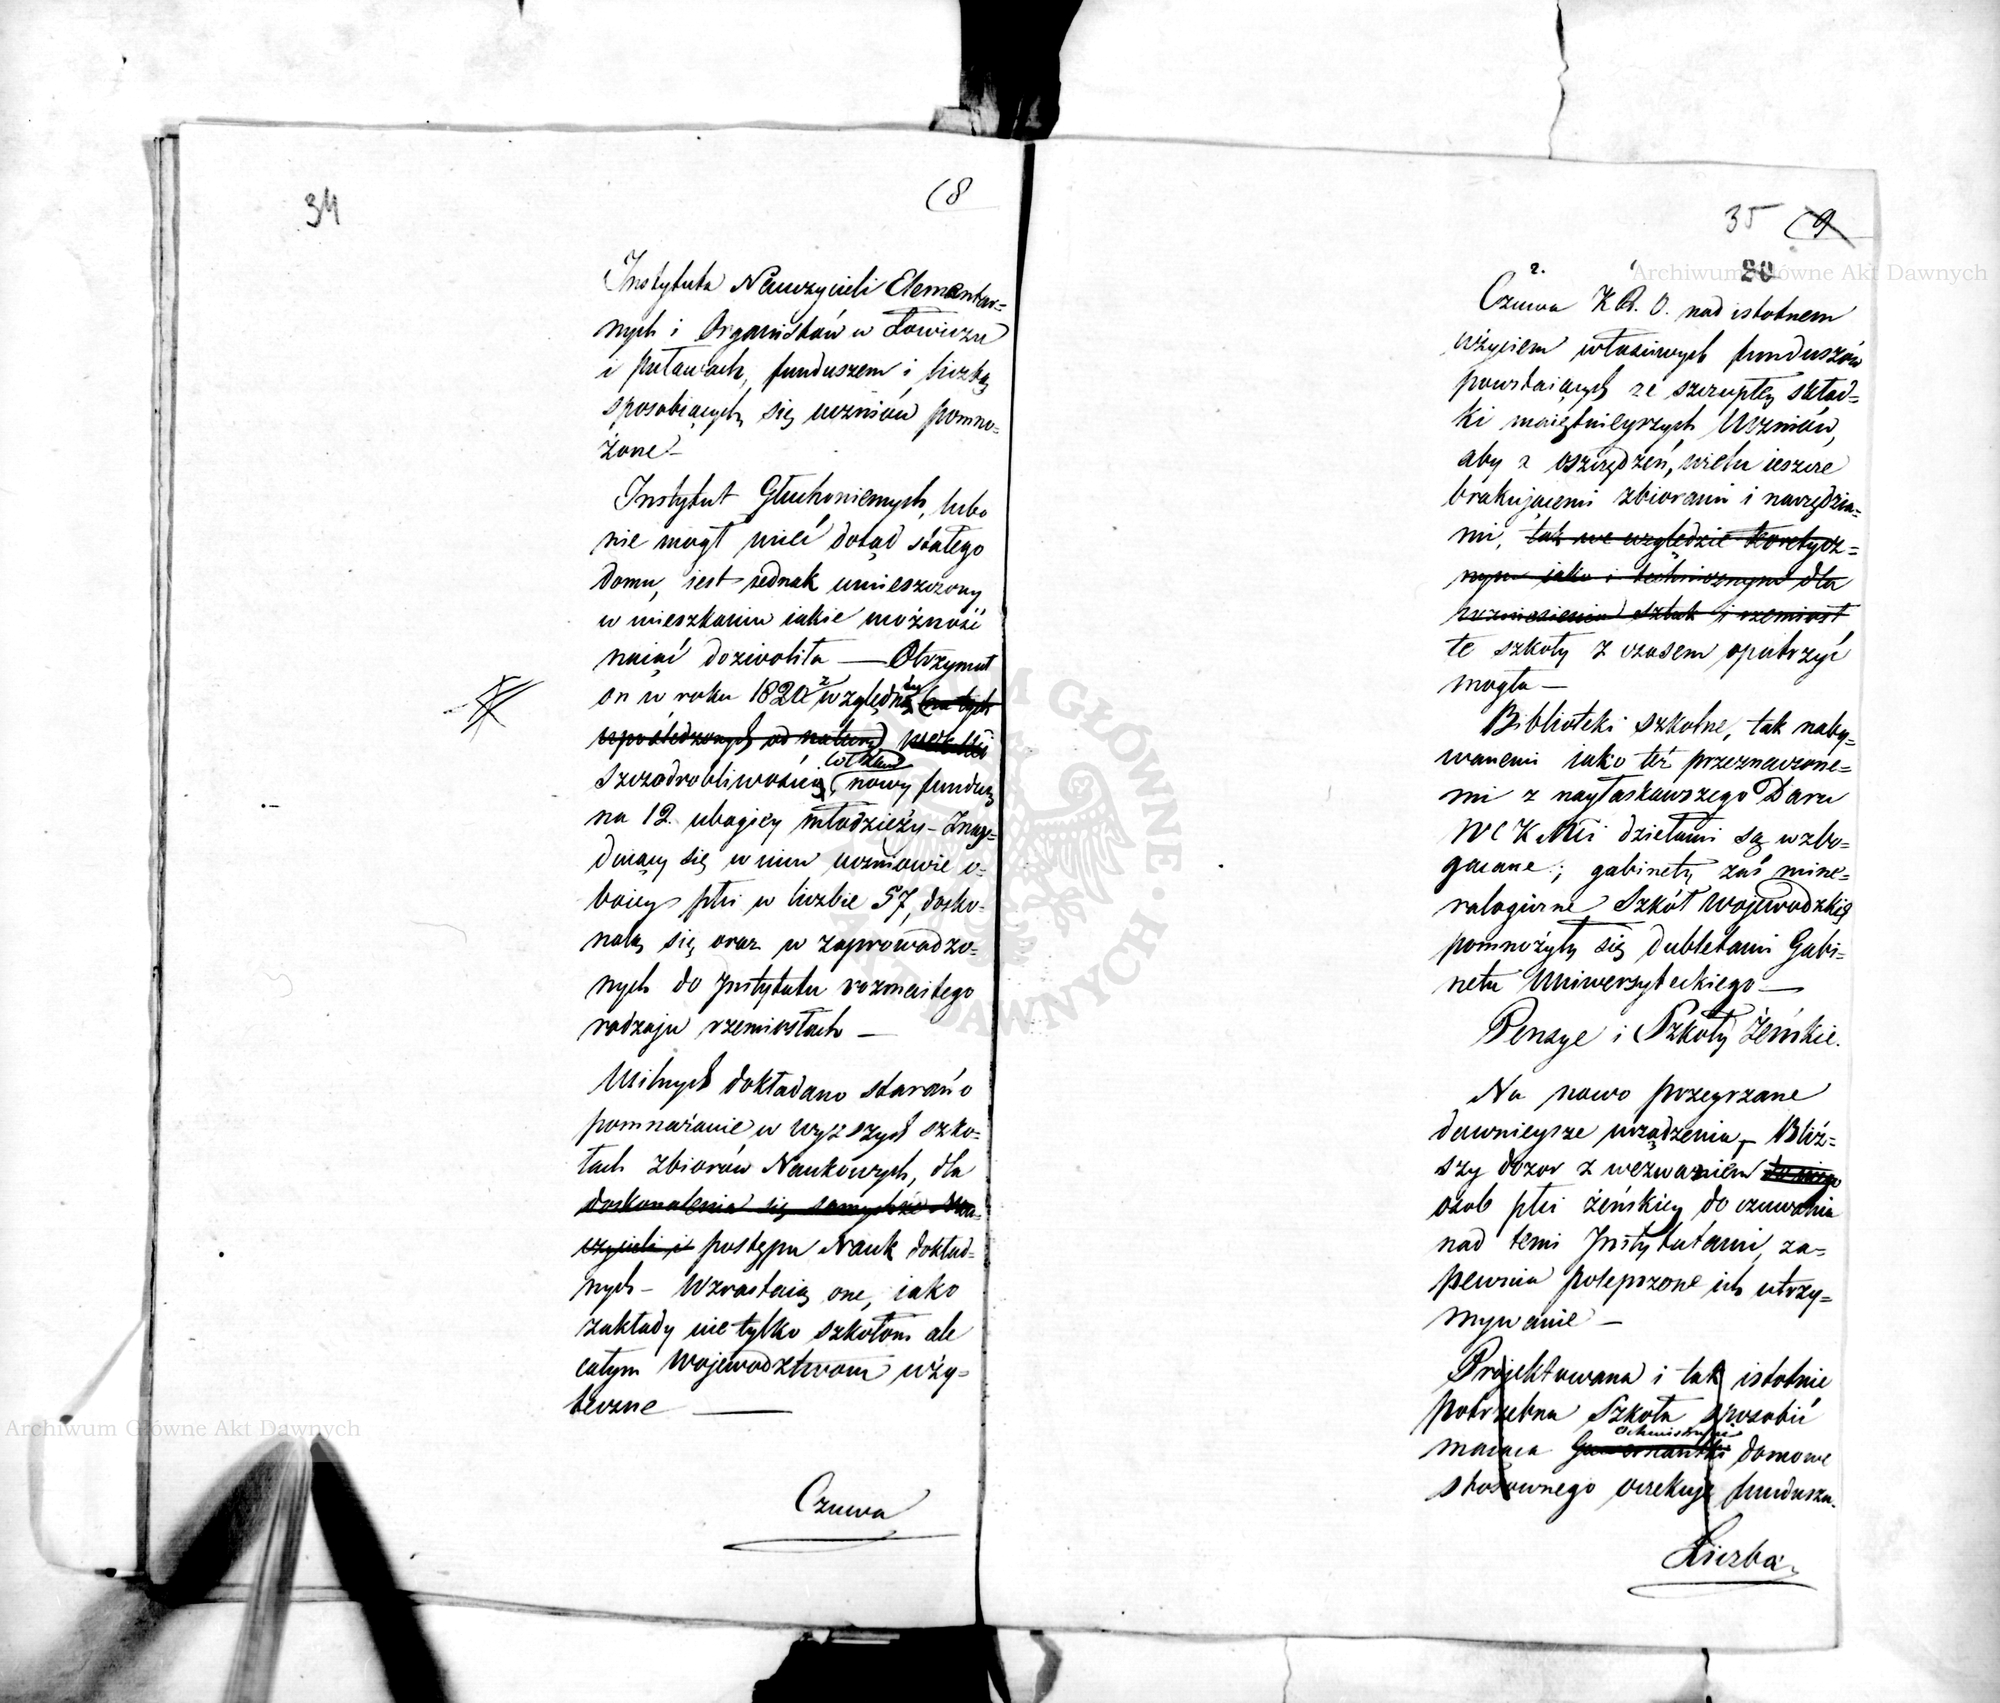 34
(8
Instytuta Nauczycieli Elementar=
nych i Organistów w Łowiczu
i puławach, funduszem i liczbą
sposobiących się uczniów pomno=
żone —
Instytut Głuchoniemych, lubo
nie mógł mieć dotąd stałego
domu, jest jednak umieszczony
w mieszkaniu jakie możność
naiąć dozwoliła — Otrzymał
on w roku 1820 z względną (na tych
upośledzonych od natury)
Szczodrobliwością, nowy fundusz
na 12. ubogiey młodzieży — Znay=
duiący się w nim uczniowie o=
boiey płci w liczbie 57, dosko=
nalą się oraz w zaprowadzo=
nych do Instytutu rozmaitego
rodzaju rzemiosłach —
Usilnych dokładano starań o
pomnażanie w wyższych szko=
łach zbiorów Naukowych, dla
doskonalenia się samychże Nau=
czycieli i postępu Nauk dokład=
nych — Wzrastaią one, iako
zakłady nie tylko szkołom ale
całym Województwom uży=
teczne —
Czuwa
35 (9
20
2.
Czuwa K R. O. nad istotnem
użyciem właściwych funduszów
powstaiących ze szczupłey skład=
ki maiętnieyszych Uczniów,
aby z oszczędzeń, wielu ieszcze
brakującemi zbiorami i narzędzia=
mi, tak we względzie teoretycz=
nym iako i technicznym dla
wzniesienia sztuk i rzemiosł
te szkoły z czasem opatrzyć
mogła —
Biblioteki szkolne, tak naby=
wanemi iako też przeznaczone=
mi z nayłaskawszego Daru
W C K Mci dziełami są wzbo=
gacane; gabinety zaś mine=
ralogiczne Szkół Wojewodzkich
pomnożyły się dubletami Gabi=
netu Uniwersyteckiego —
Pensye i Szkoły Żeńskie.
Na nowo przeyrzane
dawnieysze urządzenia, — Bliż=
szy dozor z wezwaniem do niego
osob płci żeńskiey do czuwania
nad temi Instytutami, za=
pewnia polepszone ich utrzy=
mywanie —
Projektowana i tak istotnie
potrzebna Szkoła sposobić
ochmistrzynie
maiąca Guwernantki domowe
stosownego oczekuje funduszu.
Liczba
Archiwum Główne Akt Dawnych
Archiwum Główne Akt Dawnych